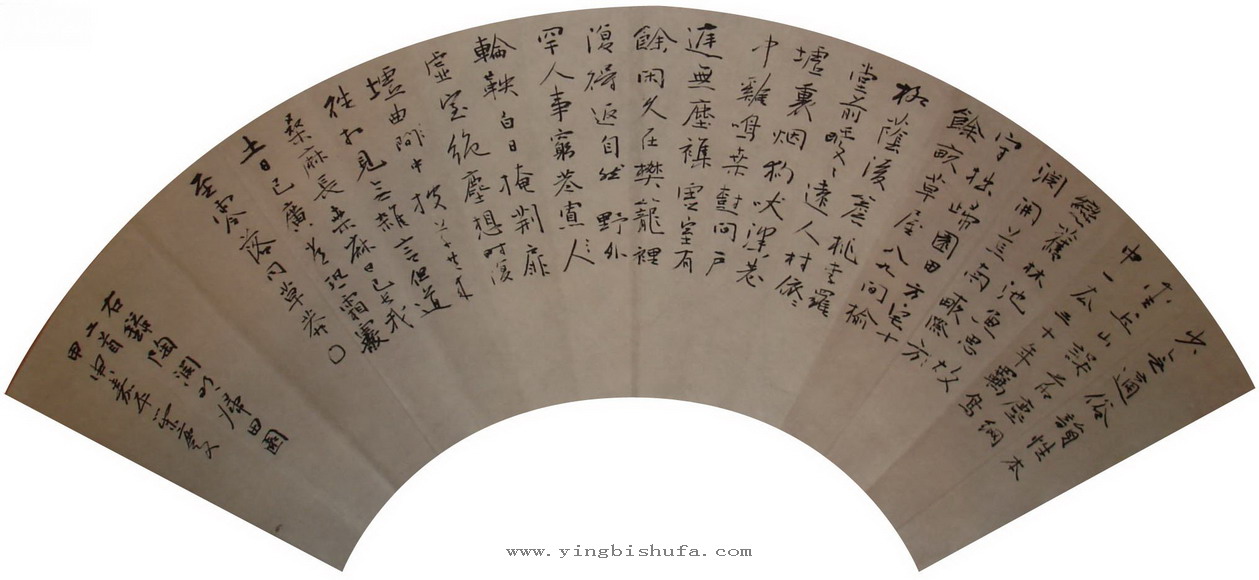 少无適俗韻性本
愛丘山誤落塵網
中一去三十年羈鳥
戀舊林池魚思故
淵開荒南畝際
守拙歸園田方宅十
餘畝草屋八九間榆
柳蔭後簷桃李羅
堂前曖曖遠人村依依
墟裏烟狗吠深巷
中雞鳴桑樹間戶
庭無塵襍虛室有
餘閑久在樊籠裡
復得返自然 野外
罕人事窮巷寡
輪鞅白日掩荆扉
虛室絕塵想時復
墟曲間中披草共來
徃相見無雜言但道
桑麻長桑麻日已長我
土日已廣常恐霜霰
至零落同草莽
右錄陶淵明歸田園
二首甲申春
www.yingbishufa.com